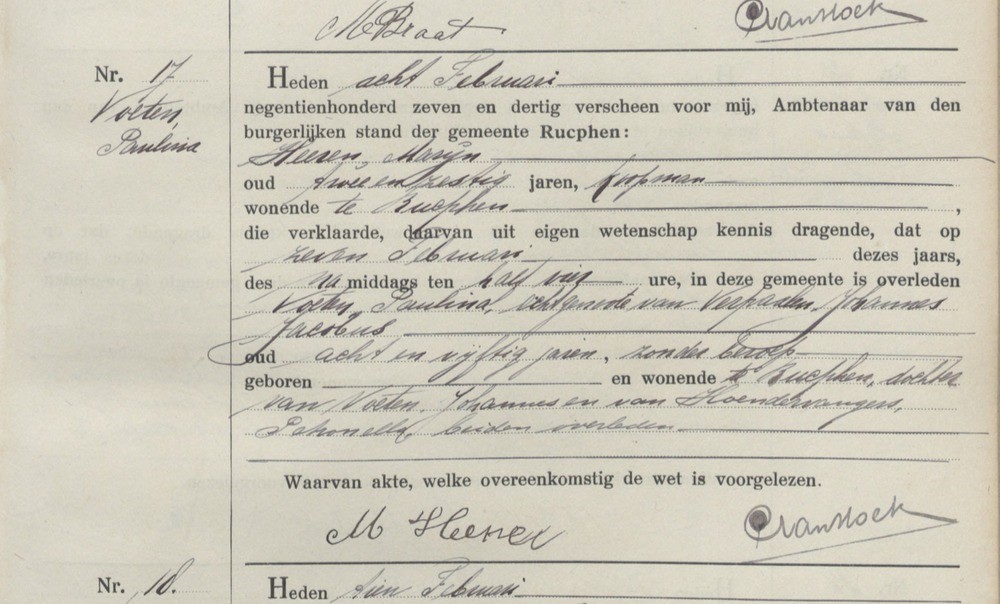 M Braat
Nr. 17
Voeten,
Paulina
Heden acht Februari
negentienhonderd zeven en dertig verscheen voor mij, Ambtenaar van den
burgerlijken stand der gemeente Rucphen:
Heeren, Marijn
oud twee en zestig jaren, koopman
wonende te Rucphen,
die verklaarde, daarvan uit eigen wetenschap kennis dragende, dat op
zeven Februari dezes jaars,
des namiddags ten half vier ure, in deze gemeente is overleden
Voeten, Paulina, echtgenoote van Verpaalen, Johannes
Jacobus
oud acht en vijftig jaren, zonder beroep
geboren en wonende te Rucphen, dochter
van Voeten, Johannes en van Hoendervangers,
Petronella, beiden overleden
Waarvan akte, welke overeenkomstig de wet is voorgelezen.
M Heeren
Nr. 18.
Heden tien Februari